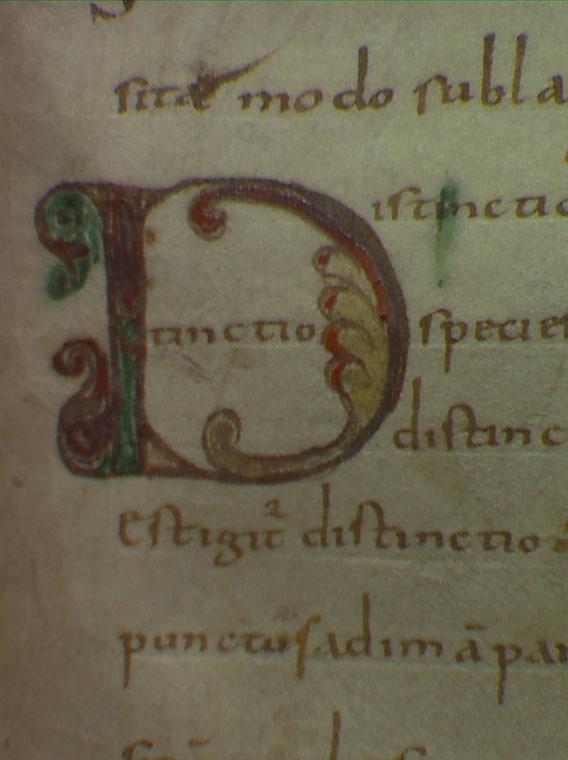 sitæ modo subla
Distinctio
tinctio species
distinc
est igit² distinctio
punctū sadim ā par